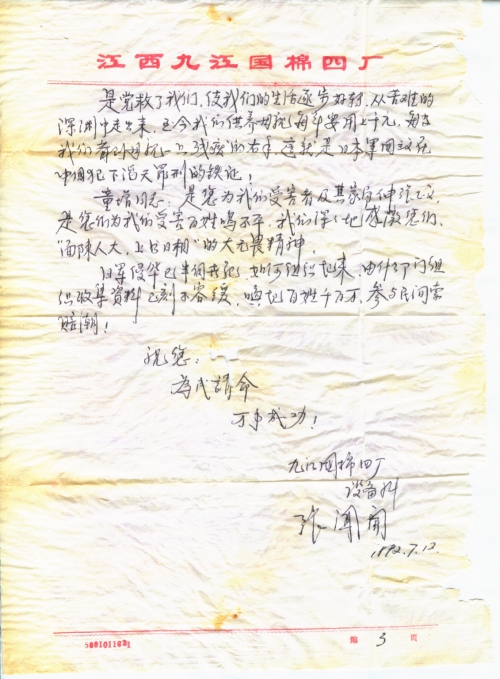 江西九江国棉四厂
是党救了我们，使我们的生活逐步好转，从苦难的
深渊中走出来，至今我们供养母亲每年要用上千元，每当
我们看到母亲残废的右手，这就是日本军国主义在
中国犯下滔天罪刑的铁证！
童增同志：是您为我们受害者及其家属伸张正义，
是您们为我们受害百姓鸣不平，我们深深地感激您们，
“面陈人大，上书日相”的大无畏精神。
日军侵华已半个世纪，如何组织起来，由什么部门组
织收集资料已刻不容缓，唤起百姓千百万，参与民间索
赔潮！
祝您：
为民请命
万事成功！
九江国棉四厂
设备科
张闻
1992.7.12.
5891011631
第 3 页